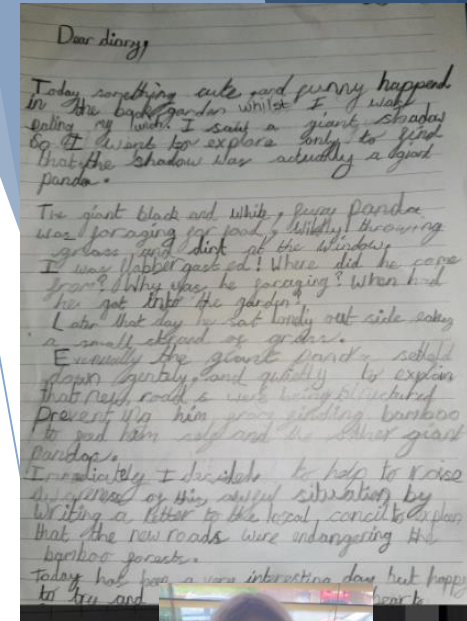 Dear diary,
Today something cute and funny happend
in the back garden whilst I was
eating my lunch. I saw a giant shadow
So I went to explore only to find
that the shadow was actually a giant
panda.
The giant black and white, furry panda
was foraging for food, wildly throwing
grass and dirt at the window.
I was flabbergasted! Where did he come
from? Why was he foraging? When had
he got into the garden?
Later that day he sat lonely out side eating
a small strand of grass.
Eventually the giant panda settled
down gently, and quietly to explain
that new roads were being structured
Preventing him from finding bamboo
to feed him self and the other giant
pandas.
Immediately I decided to help to raise
awareness of this awful situation by
writing a letter to the local concil to explain
that the new roads were endangering the
bamboo forests.
Today has been a very interesting day but happy
to try and